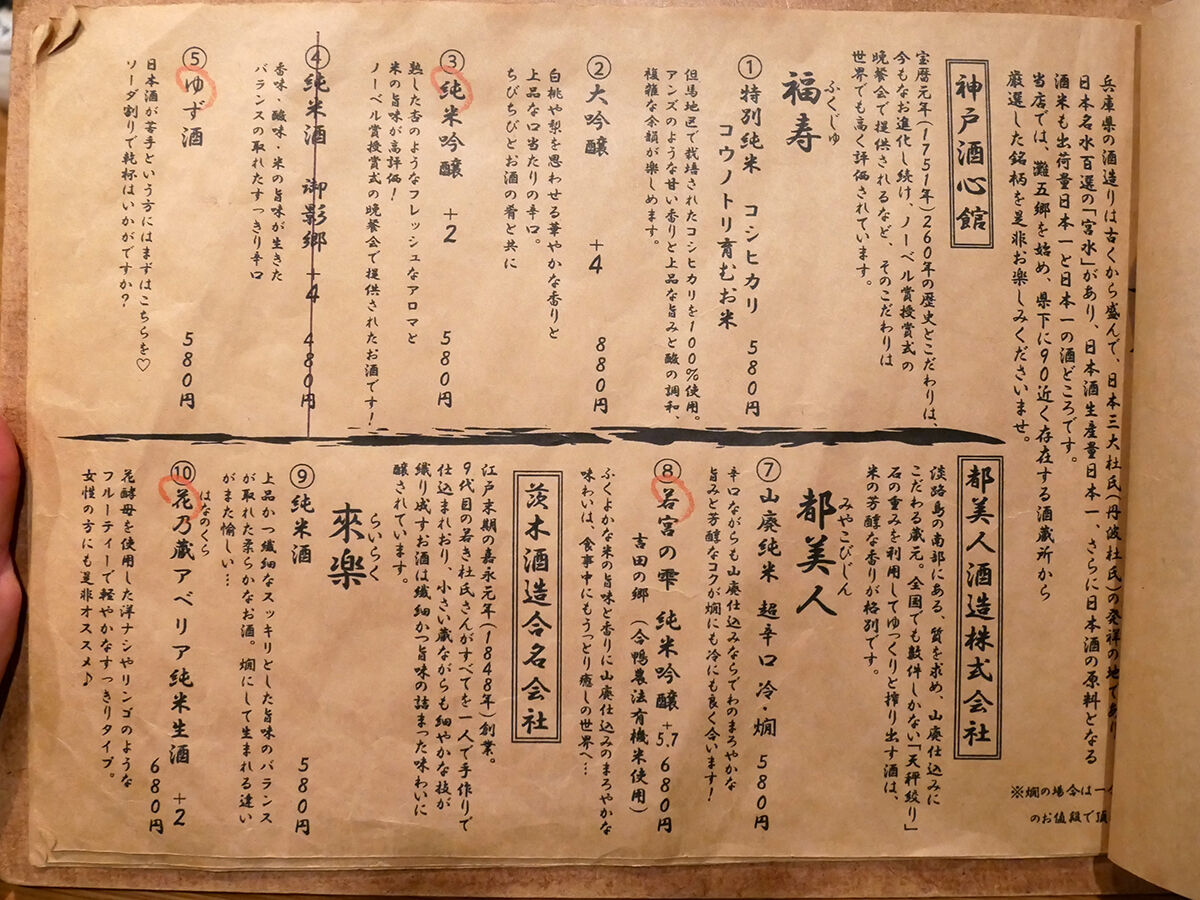 兵庫県の酒造りは古くから盛んで、日本三大杜氏(丹波杜氏)の発祥の地であり
日本名水百選の「宮水」があり、日本酒生産量日本一、さらに日本酒の原料となる
酒米も出荷量日本一と日本一の酒どころです。
当店では、灘五郷を始め、県下に90近く存在する酒蔵所から
厳選した銘柄を是非お楽しみくださいませ。
※燗の場合は一
のお値段で頂
神戸酒心館
宝暦元年(1751年)260年の歴史とこだわりは、
今もなお進化し続け、ノーベル賞授賞式の
晩餐会で提供されるなど、そのこだわりは
世界でも高く評価されています。
ふくじゅ
福寿
①特別純米 コシヒカリ 580円
コウノトリ育むお米
但馬地区で栽培されたコシヒカリを100%使用。
アンズのような甘い香りと上品な旨みと酸の調和、
複雑な余韻が楽しめます。
②大吟醸 +4 880円
白桃や梨を思わせる華やかな香りと
上品な口当たりの辛口。
ちびちびとお酒の肴と共に
③純米吟醸 +2 580円
熟した杏のようなフレッシュなアロマと
米の旨味が高評価!
ノーベル賞授賞式の晩餐会で提供されたお酒です!
④純米酒 御影郷 +4 480円
香味・酸味・米の旨味が生きた
バランスの取れたすっきり辛口
⑤ゆず酒 580円
日本酒が苦手という方にはまずはこちらを♡
ソーダ割りで乾杯はいかがですか?
都美人酒造株式会社
淡路島の南部にある、質を求め、山廃仕込みに
こだわる蔵元。全国でも数件しかない「天秤絞り」
石の重みを利用してゆっくりと搾り出す酒は、
米の芳醇な香りが格別です。
みやこびじん
都美人
⑦山廃純米 超辛口 冷・燗 580円
辛口ながらも山廃仕込みならでわのまろやかな
旨みと芳醇なコクが燗にも冷にも良く合います!
⑧若宮の雫 純米吟醸 +5.7 680円
吉田の郷 (合鴨農法有機米使用)
ふくよかな米の旨味と香りに山廃仕込みのまろやかな
味わいは、食事中にもうっとり癒しの世界へ…
茨木酒造合名会社
江戸末期の嘉永元年(1848年)創業。
9代目の若き杜氏さんがすべてを一人で手作りで
仕込まれおり、小さい蔵ながらも細やかな技が
織り成すお酒は繊細かつ旨味の詰まった味わいに
醸されています。
らいらく
來楽
⑨純米酒 580円
上品かつ繊細なスッキリとした旨味のバランス
が取れた柔らかなお酒。燗にして生まれる違い
がまた愉しい…
はなのくら
⑩花乃蔵アベリア純米生酒 +2 680円
花酵母を使用した洋ナシやリンゴのような
フルーティーで軽やかなすっきりタイプ。
女性の方にも是非オススメ♪